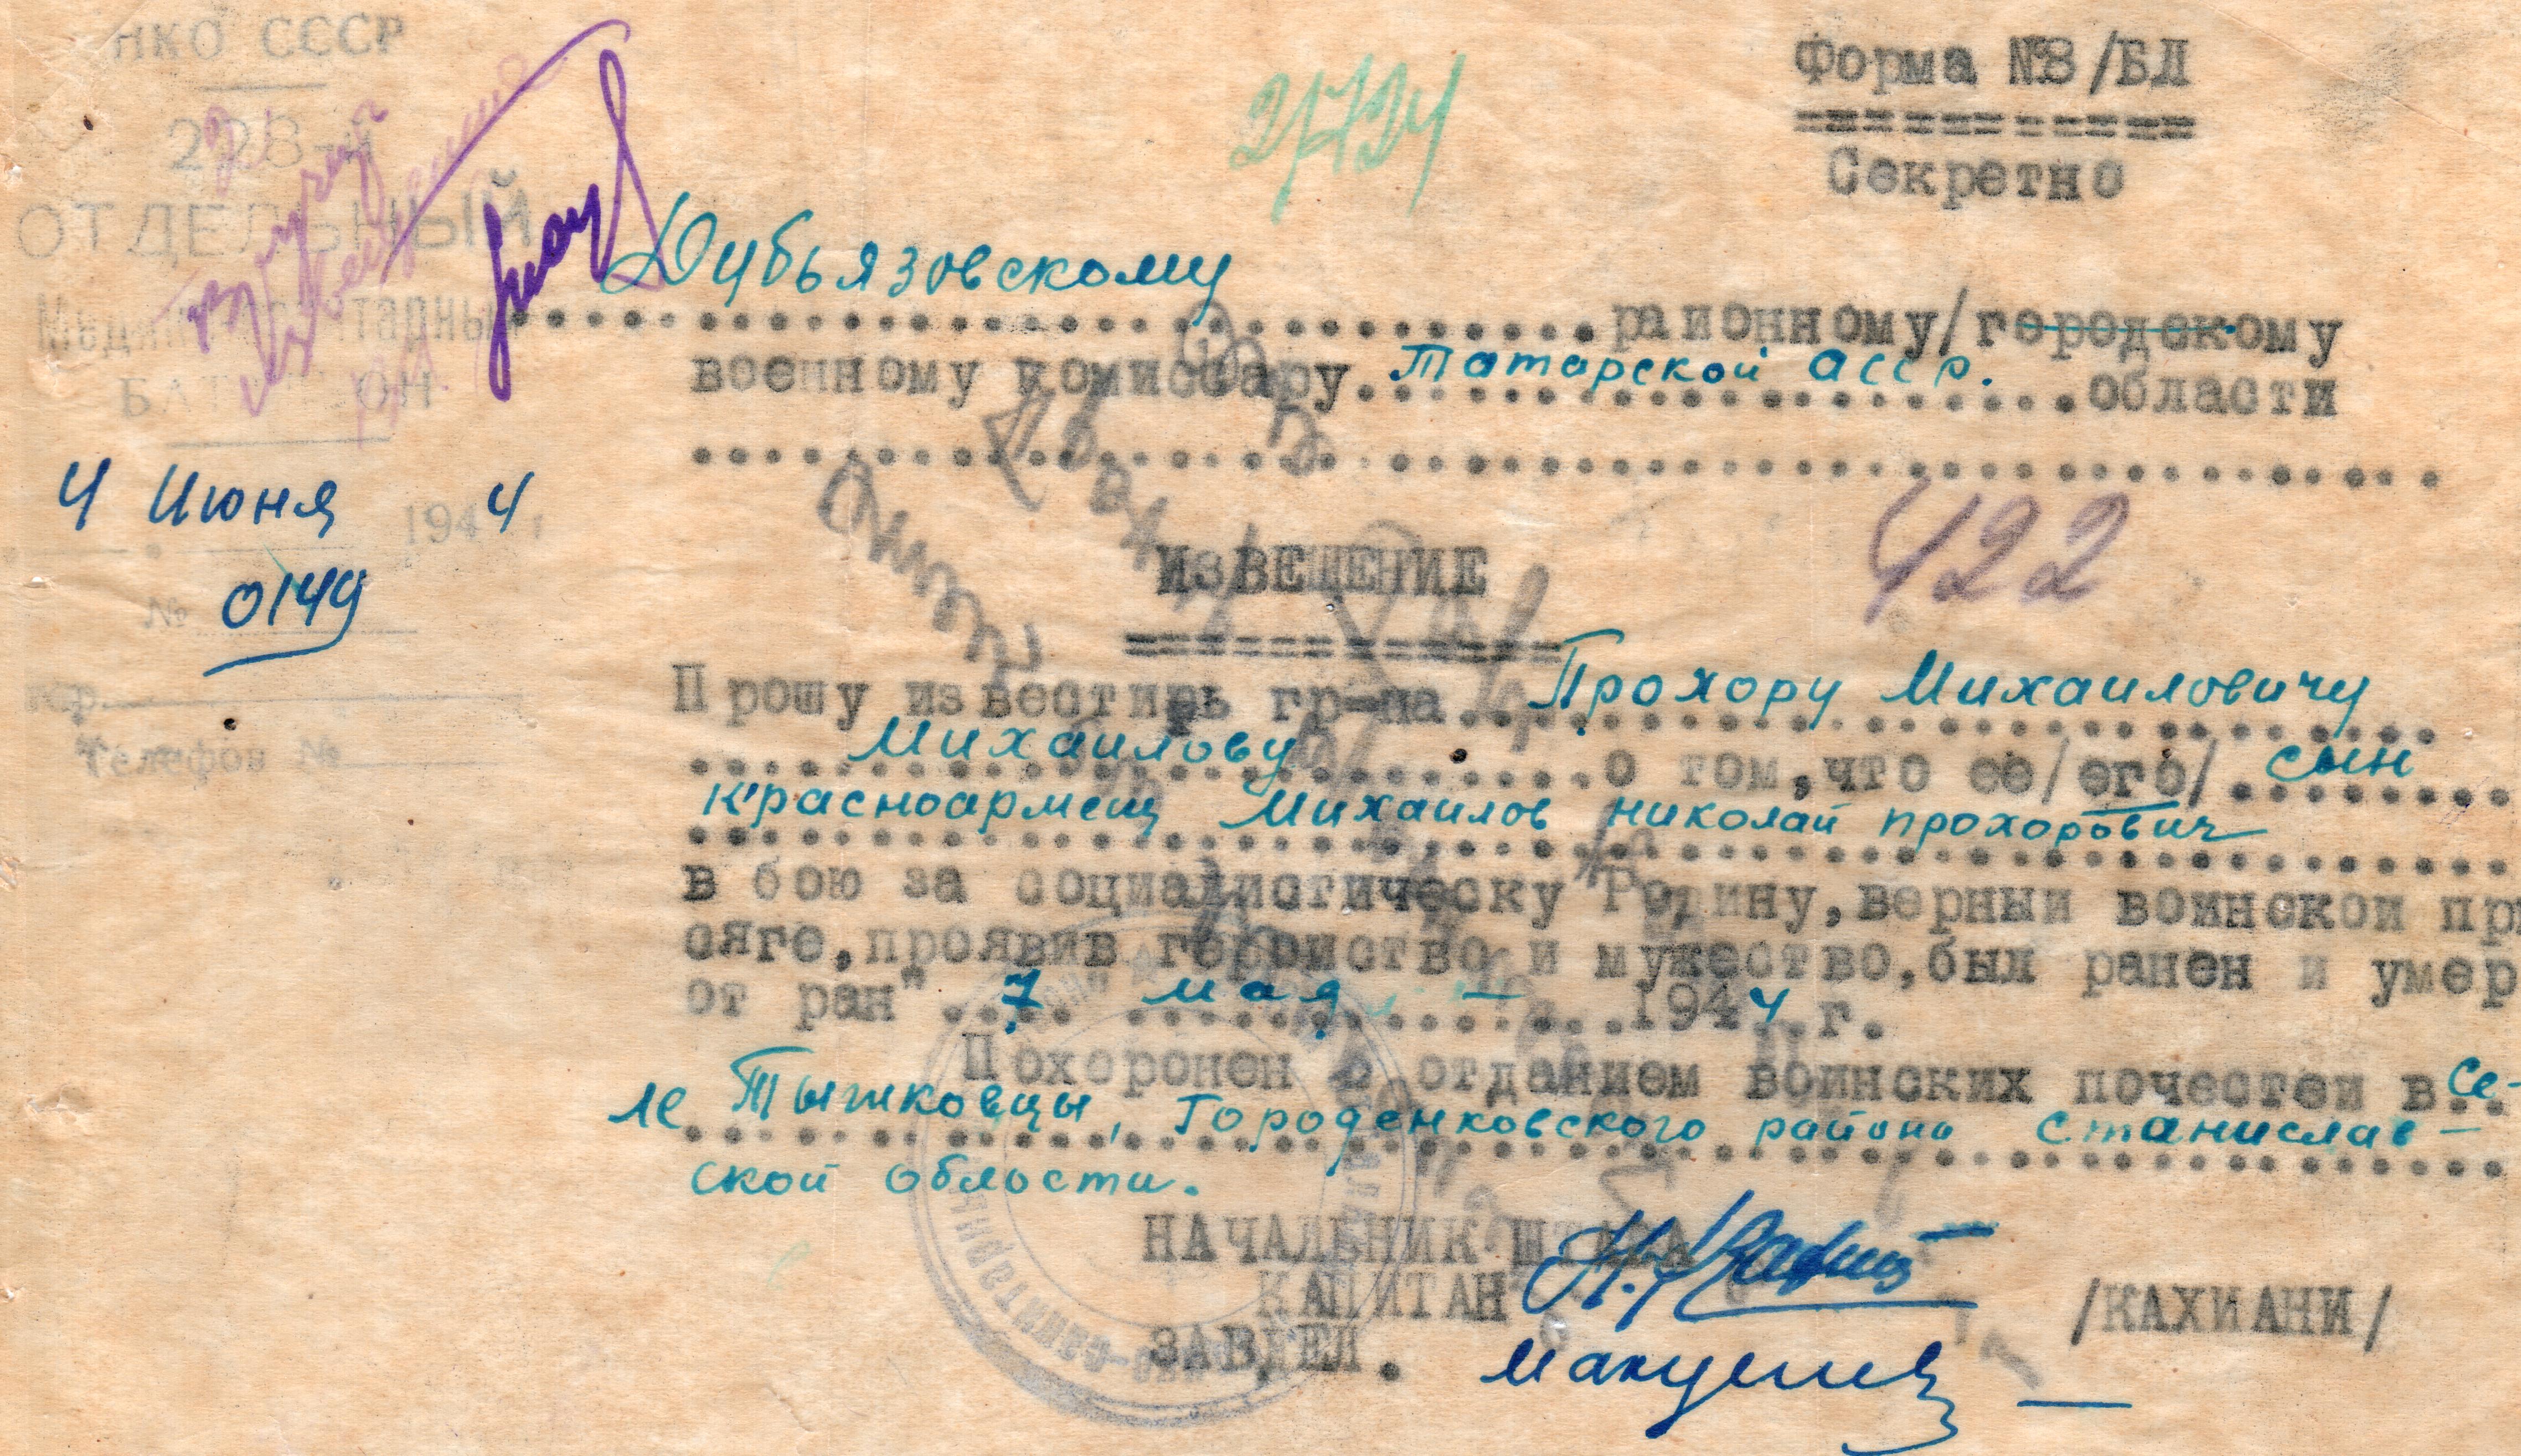 НКО СССР
228-й
ОТДЕЛЬНЫЙ
БАТ ОН
4 Июня 1944 г
№ 0149
гор.
Телефон №
2/724
Форма №8/БЛ
Секретно
Дубьязовскому
районному/городскому
военному комиссару Татарской АССР. области
422
ИЗВЕЩЕНИЕ
Прошу известирь гр-на Прохору Михаиловичу
Михаилову о том,что ее/его/ сын
Красноармеец Михаилов Николай Прохорович
в бою за социалистическу Родину,верный воинской при
сяге,проявив геройство и мужество,был ранен и умер
от ран" 7 " мая 1944 г.
Похоронен с отданием воинских почестей в се-
ле Тышковцы, Городенковского района Станислав-
ской области.
НАЧАЛЬНИК ШТАБА
КАПИТАН /КАХИАНИ/
ЗАВДЕЛ.